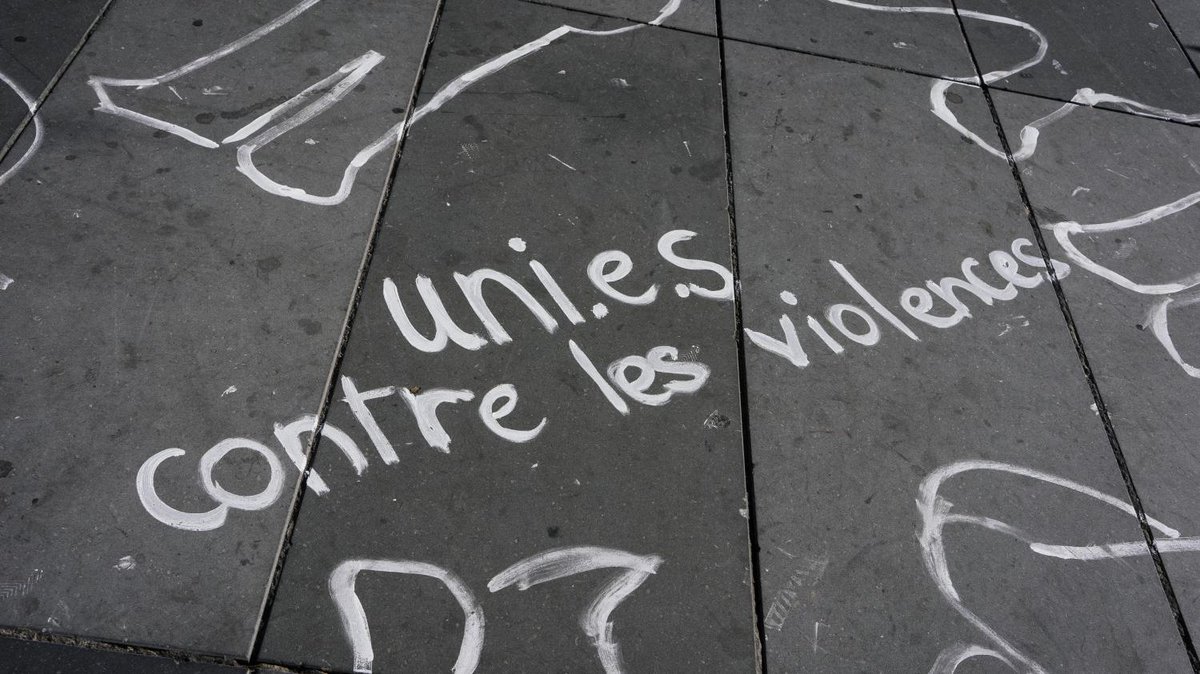 uni.e.s
contre les violences